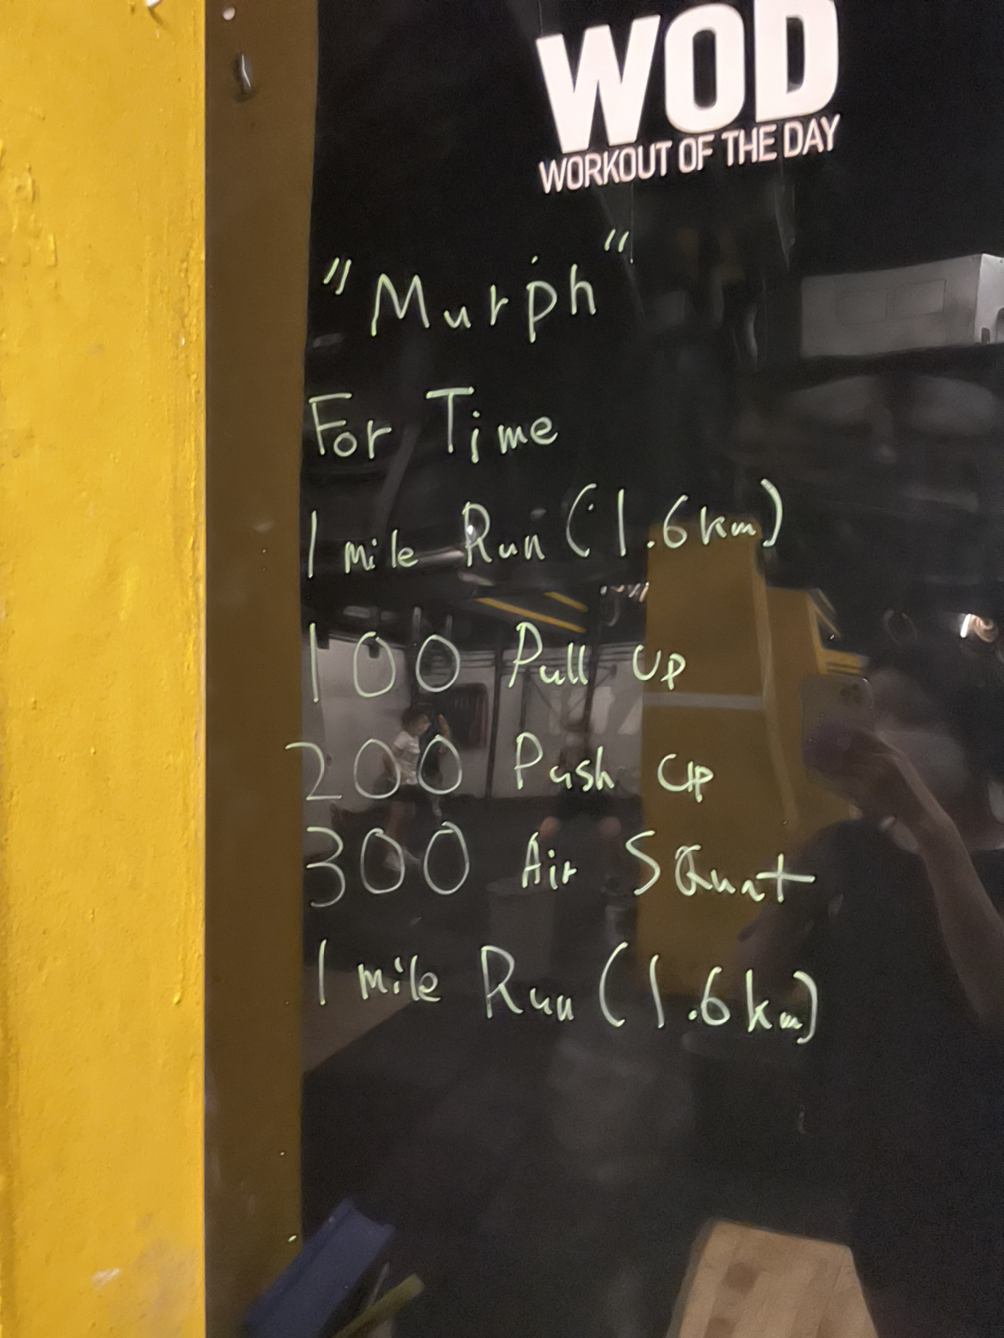 WOD
WORKOUT OF THE DAY
"Murph"
For Time
1 mile Run (1.6km)
100 Pull UP
200 Push UP
300 Air SQuat
1 mile Run (1.6km)